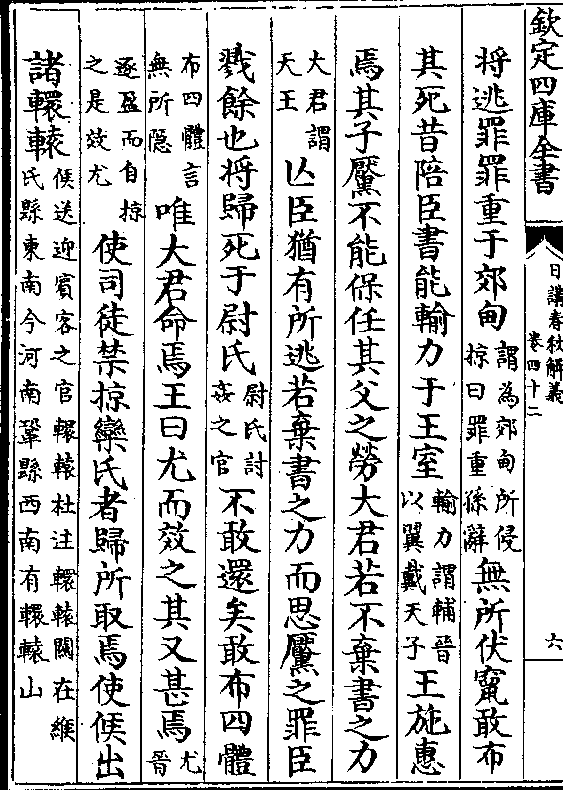 欽定四庫全書
日講春秋解義
卷四十二
六
將逃罪罪重于郊甸謂為郊甸所侵掠曰罪重孫辭無所伏竄敢布
其死昔陪臣書能輸力于王室輸力謂輔晉以翼戴天子王施惠
焉其子黶不能保任其父之勞大君若不棄書之力
大君謂天王亾臣猶有所逃若棄書之力而思黶之罪臣
戮餘也将歸死于尉氏尉氏討姦之官不敢還矣敢布四體
布四體言無所隱唯大君命焉王曰尤而效之其又甚焉尤晉
逐盈而自掠之是效尤使司徒禁掠欒氏者歸所取焉使候出
諸轘轅候送迎賓客之官轘轅杜注轘轅關在緱氏縣東南今河南鞏縣西南有轘轅山